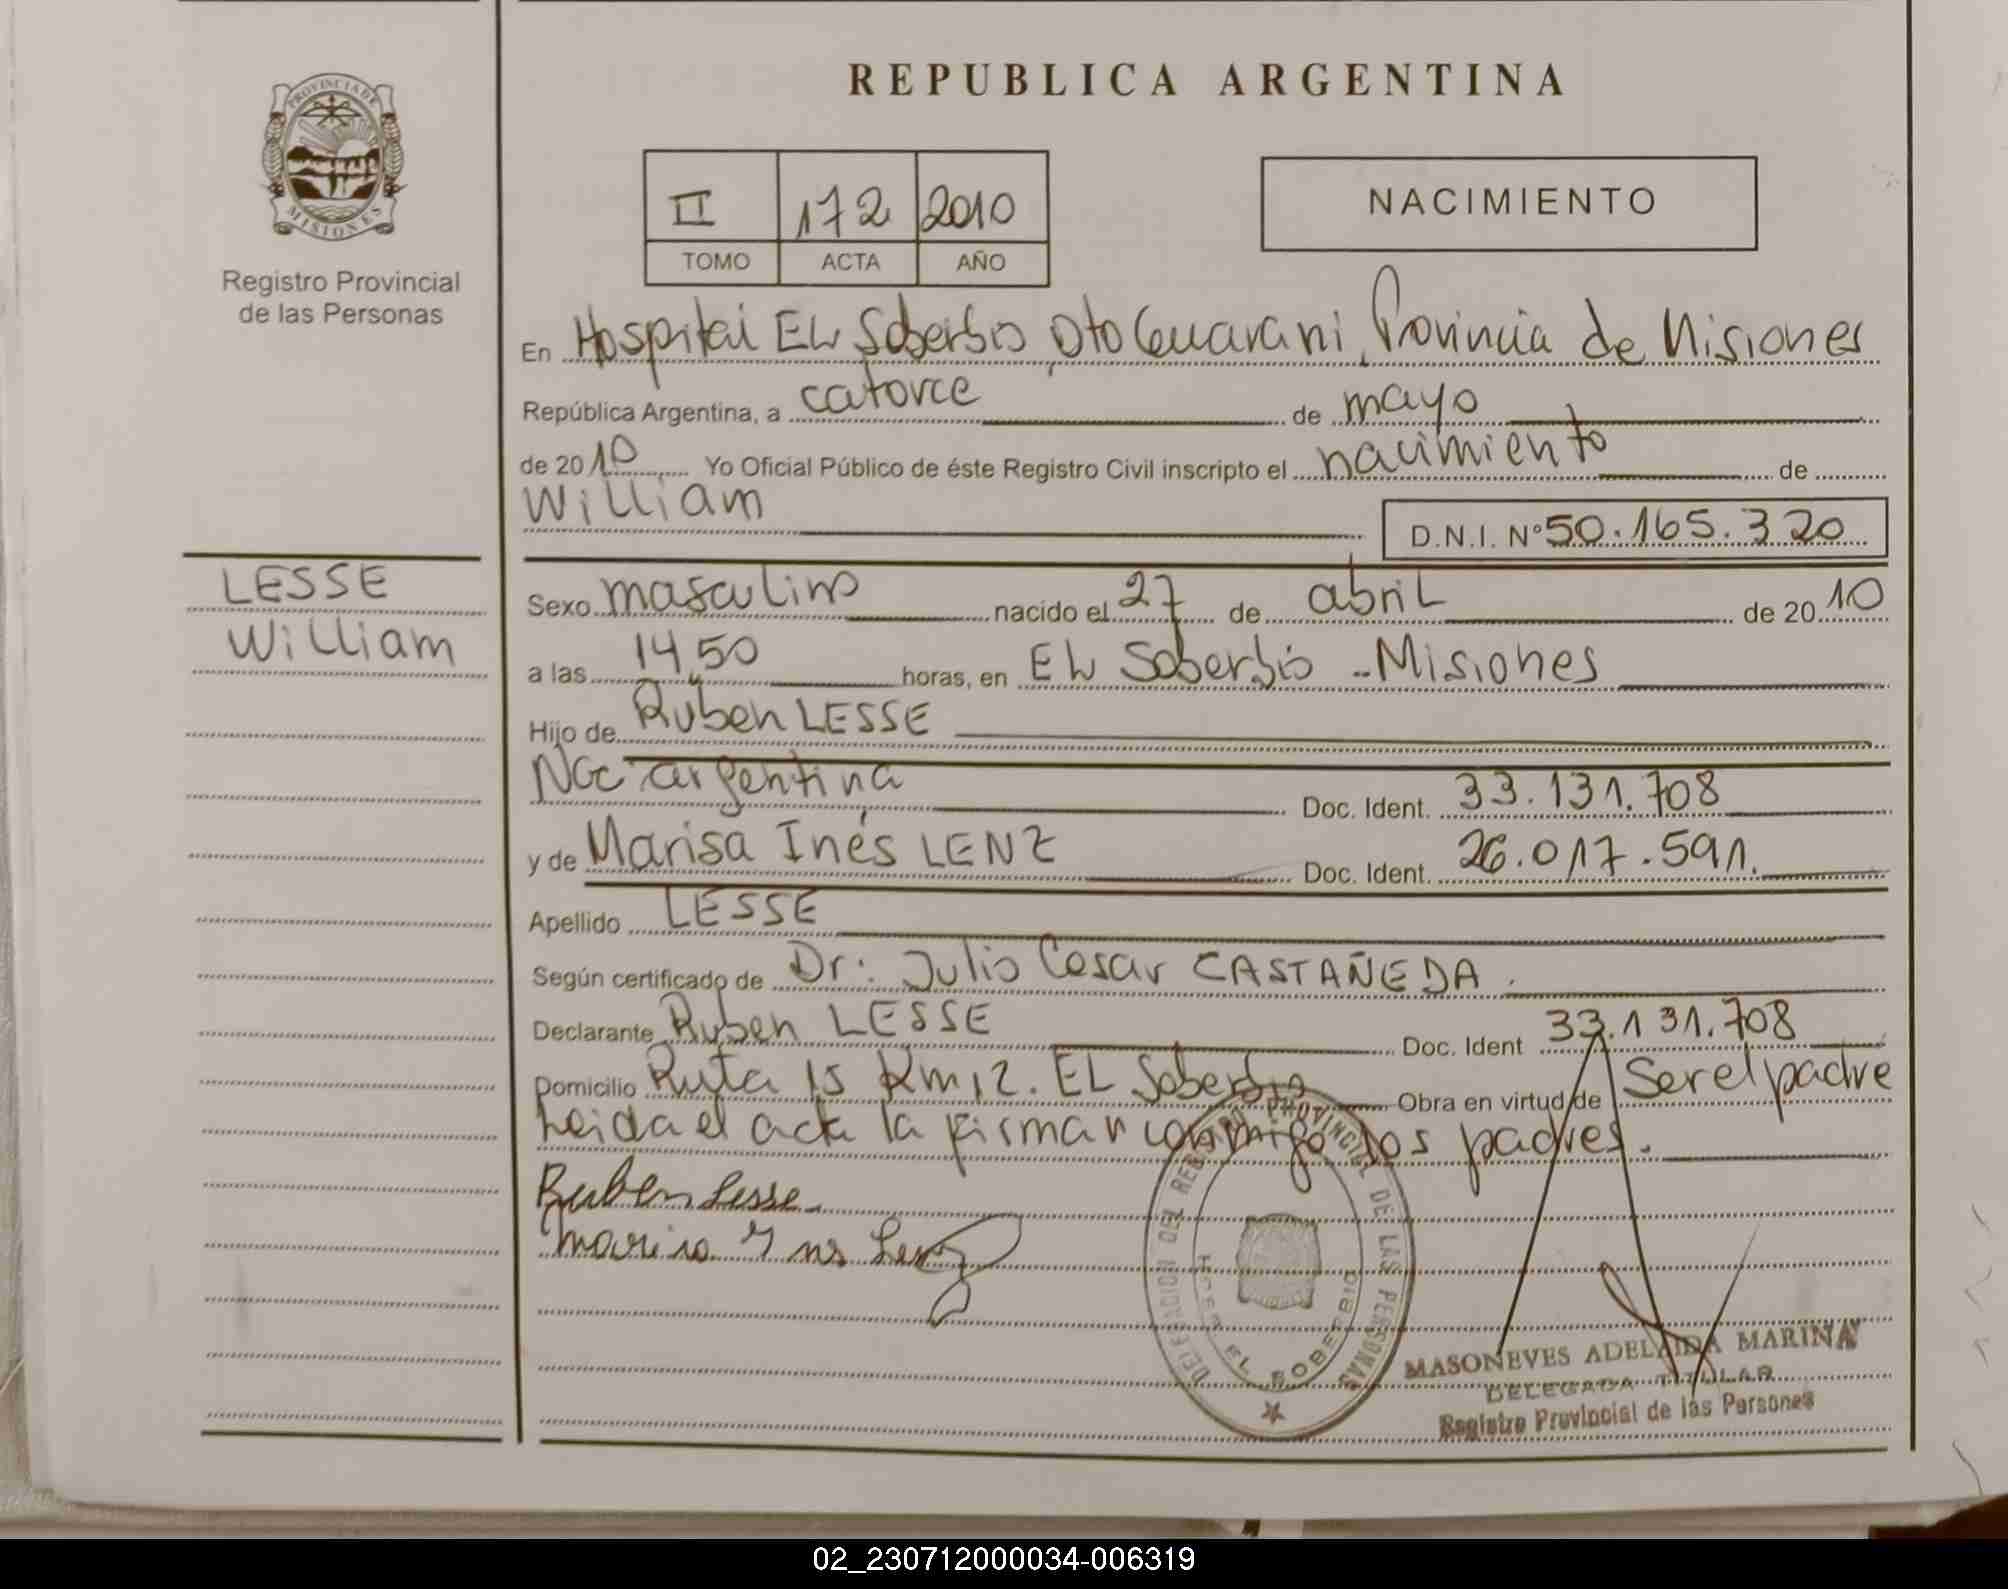 REPUBLICA ARGENTINA
PROVINCIA DE
MISIONES
Registro Provincial
de las Personas
II 172 2010
TOMO ACTA AÑO
NACIMIENTO
En Hospital EL Soberbio, Dto Guarani, Provincia de Misiones
República Argentina, a catorce de mayo
de 2010 Yo Oficial Público de éste Registro Civil inscripto el nacimiento de
William
D.N.I. Nº 50.165.320
LESSE
William
Sexo masculino nacido el 27 de abril de 2010
a las 14,50 horas, en EL Soberbio - Misiones
Hijo de Ruben LESSE
Nac argentina Doc. Ident. 33.131.708
y de Marisa Inés LENZ Doc. Ident. 26.017.591.
Apellido LESSE
Según certificado de Dr: Julio Cesar CASTAÑEDA.
Declarante Ruben LESSE Doc. Ident 33.131.708
Domicilio Ruta 15 Km 12. EL Soberbio Obra en virtud de Ser el padre
Leida el acta la firman conmigo los padres.
Ruben Lesse
Marisa Ines Lenz
DELEGACION DEL REGISTRO PROVINCIAL DE LAS PERSONAS
EL SOBERBIO
MASONEVES ADELAIDA MARINA
DELEGADA TITULAR
Registro Provincial de las Personas
02_230712000034-006319